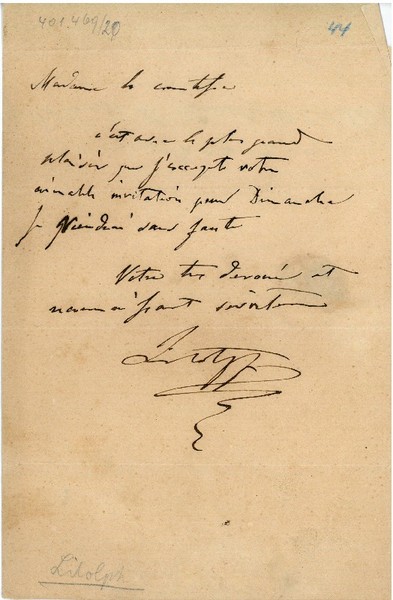 401.469/20
44
Madame la comtesse
c'est avec le plus grand
plaisir que j'accepte votre
aimable invitation pour Dimanche
je viendrai sans faute
Votre tres devoué et
reconnaissant serviteur
Litolff
Litolph